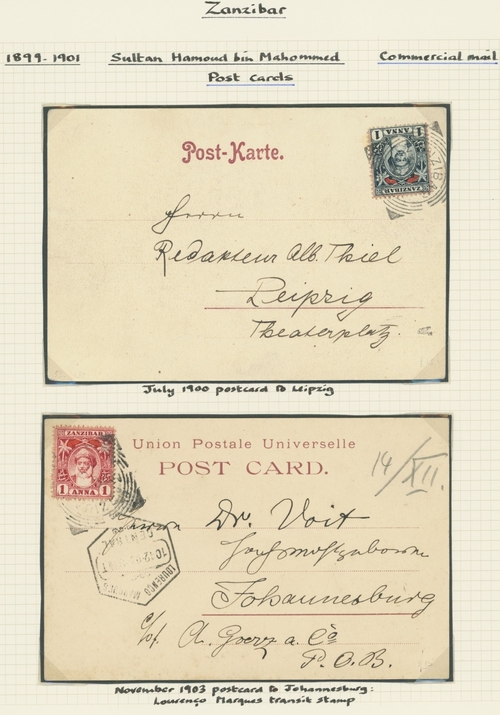 Zanzibar
1899-1901 Sultan Hamoud bin Mahommed Commercial mail
Post cards
Post-Karte.
1 ANNA 1
ZANZIBAR
Herrn
Redakteur Alb. Thiel
Leipzig
Theaterplatz.
July 1900 postcard to Leipzig
ZANZIBAR
1 ANNA 1
Union Postale Universelle
POST CARD.
14/XII.
Herrn Dr. Voit
Johannesburg
c/o A. Goerz a. Co
P.O.B.
LOURENÇO MARQUES
CENTRAL
November 1903 postcard to Johannesburg:
Lourenço Marques transit stamp